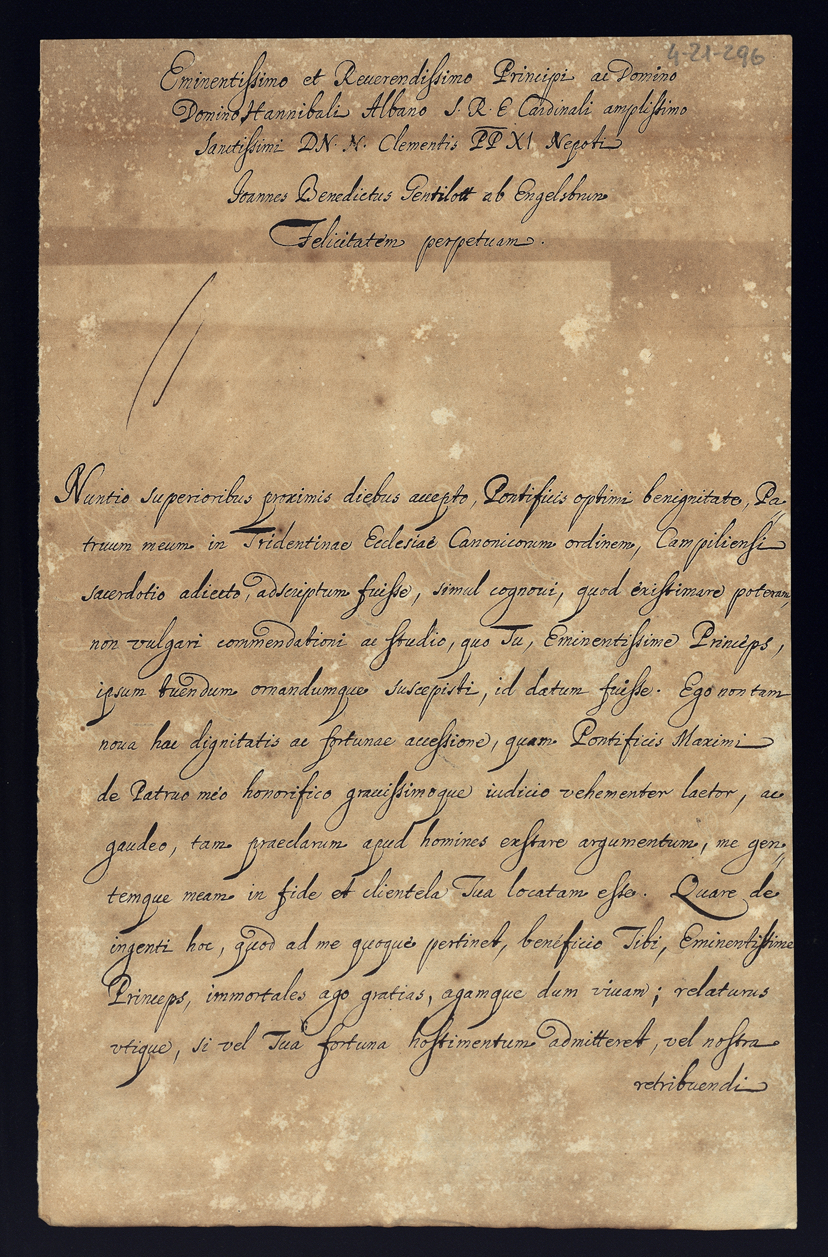 4-21-296
Eminentissimo et Reuerendissimo Principi ac Domino
Domino Hannibali Albano S. R. E Cardinali amplissimo
Sanctissimi DN. N. Clementis PP XI Nepoti
Joannes Benedictus Gentilott ab Engelsbrun
Felicitatem perpetuam.
Nuntio superioribus proximis diebus accepto, Pontificis optimi benignitate, Pa„
truum meum in Tridentinae Ecclesiae Canonicorum ordinem, Campiliensi
sacerdotio adiecto, adscriptum fuisse, simul cognoui, quod existimare poteram,
non vulgari commendationi ac studio, quo Tu, Eminentissime Princeps,
ipsum tuendum ornandumque suscepisti, id datum fuisse. Ego non tam
noua hac dignitatis ac fortunae accessione, quam Pontificis Maximi
de Patruo meo honorifico grauissimoque iudicio vehementer laetor, ac
gaudeo, tam praeclarum apud homines exstare argumentum, me gen„
temque meam in fide et clientela Tua locatam esse. Quare de
ingenti hoc, quod ad me quoque pertinet, beneficio Tibi, Eminentissime
Princeps, immortales ago gratias, agamque dum viuam; relaturus
vtique, si vel Tua fortuna hostimentum admitteret, vel nostra
retribuendi